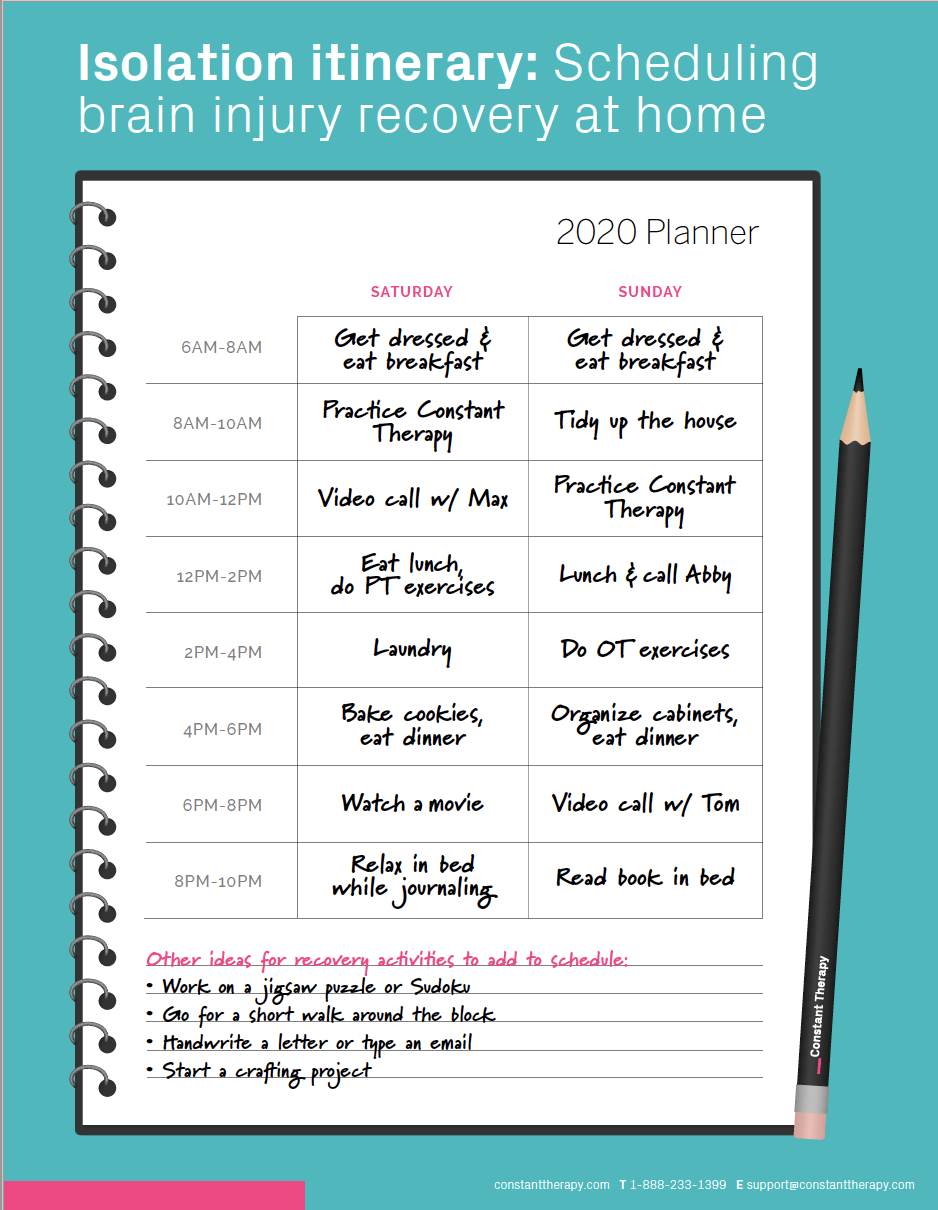 Isolation itinerary: Scheduling
brain injury recovery at home
2020 Planner
SATURDAY SUNDAY
6AM-8AM Get dressed & Get dressed &
eat breakfast eat breakfast
8AM-10AM Practice Constant Tidy up the house
Therapy
10AM-12PM Video call w/ Max Practice Constant
Therapy
12PM-2PM Eat lunch, Lunch & call Abby
do PT exercises
2PM-4PM Laundry Do OT exercises
4PM-6PM Bake cookies, Organize cabinets,
eat dinner eat dinner
6PM-8PM Watch a movie Video call w/ Tom
8PM-10PM Relax in bed Read book in bed
while journaling
Other ideas for recovery activities to add to schedule:
• Work on a jigsaw puzzle or Sudoku
• Go for a short walk around the block
• Handwrite a letter or type an email
• Start a crafting project
Constant Therapy
constanttherapy.com T 1-888-233-1399 E support@constanttherapy.com